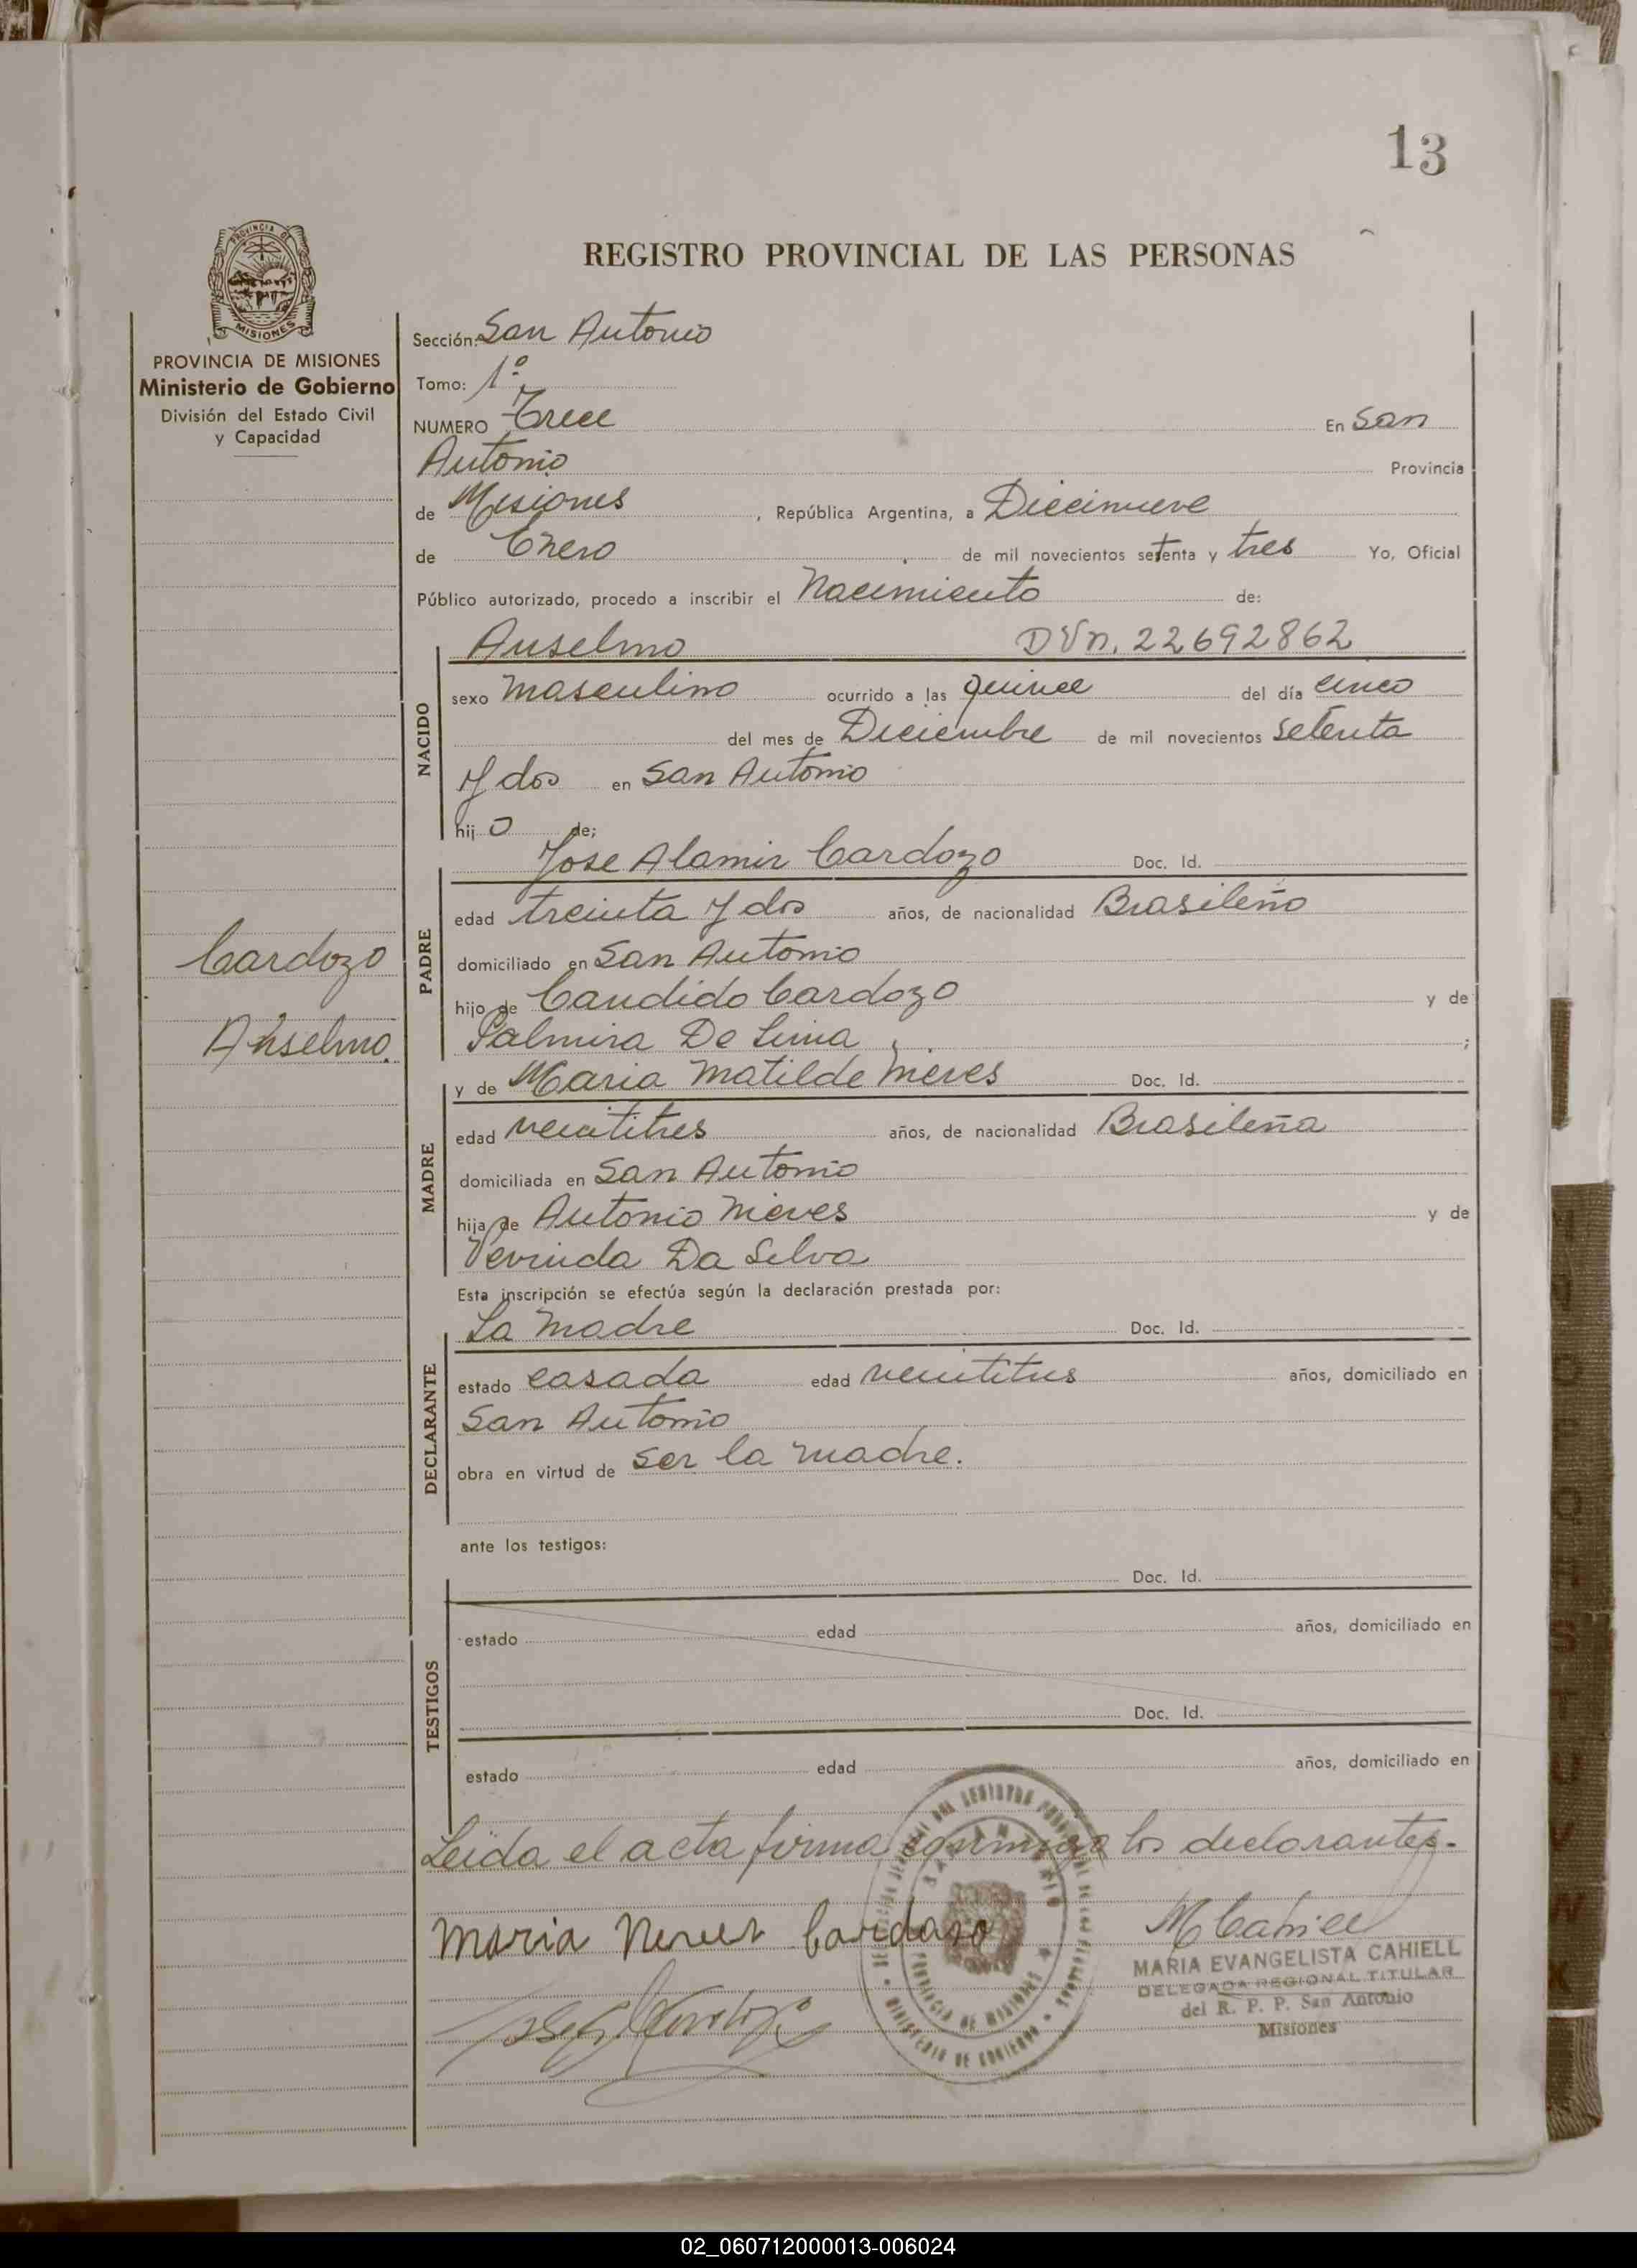 13
PROVINCIA DE
MISIONES
REGISTRO PROVINCIAL DE LAS PERSONAS
PROVINCIA DE MISIONES
Ministerio de Gobierno
División del Estado Civil
y Capacidad
Cardozo
Anselmo.
Sección: San Antonio
Tomo: 1º
NUMERO Trece En San
Antonio Provincia
de Misiones, República Argentina, a Diecinueve
de Enero de mil novecientos setenta y tres Yo, Oficial
Público autorizado, procedo a inscribir el Nacimiento de:
Anselmo DVn. 22692862
NACIDO
sexo masculino ocurrido a las quince del día cinco
del mes de Diciembre de mil novecientos setenta
y dos en San Antonio
hij o de;
Jose Alamir Cardozo Doc. Id.
PADRE
edad treinta y dos años, de nacionalidad Brasileño
domiciliado en San Antonio
hijo de Candido Cardozo y de
Palmira De Lima ;
y de Maria Matilde Nieves Doc. Id.
MADRE
edad veintitres años, de nacionalidad Brasileña
domiciliada en San Antonio
hija de Antonio Nieves y de
Da Silva
Esta inscripción se efectúa según la declaración prestada por:
La madre Doc. Id.
DECLARANTE
estado casada edad veintitres años, domiciliado en
San Antonio
obra en virtud de ser la madre.
ante los testigos:
Doc. Id.
TESTIGOS
estado edad años, domiciliado en
Doc. Id.
estado edad años, domiciliado en
Leida el acta firma conmigo los declarantes.
Maria Neves Cardozo
M Cahiell
MARIA EVANGELISTA CAHIELL
DELEGADA REGIONAL TITULAR
del R. P. P. San Antonio
Misiones
PROVINCIA DE MISIONES
MINISTERIO DE GOBIERNO
02_060712000013-006024